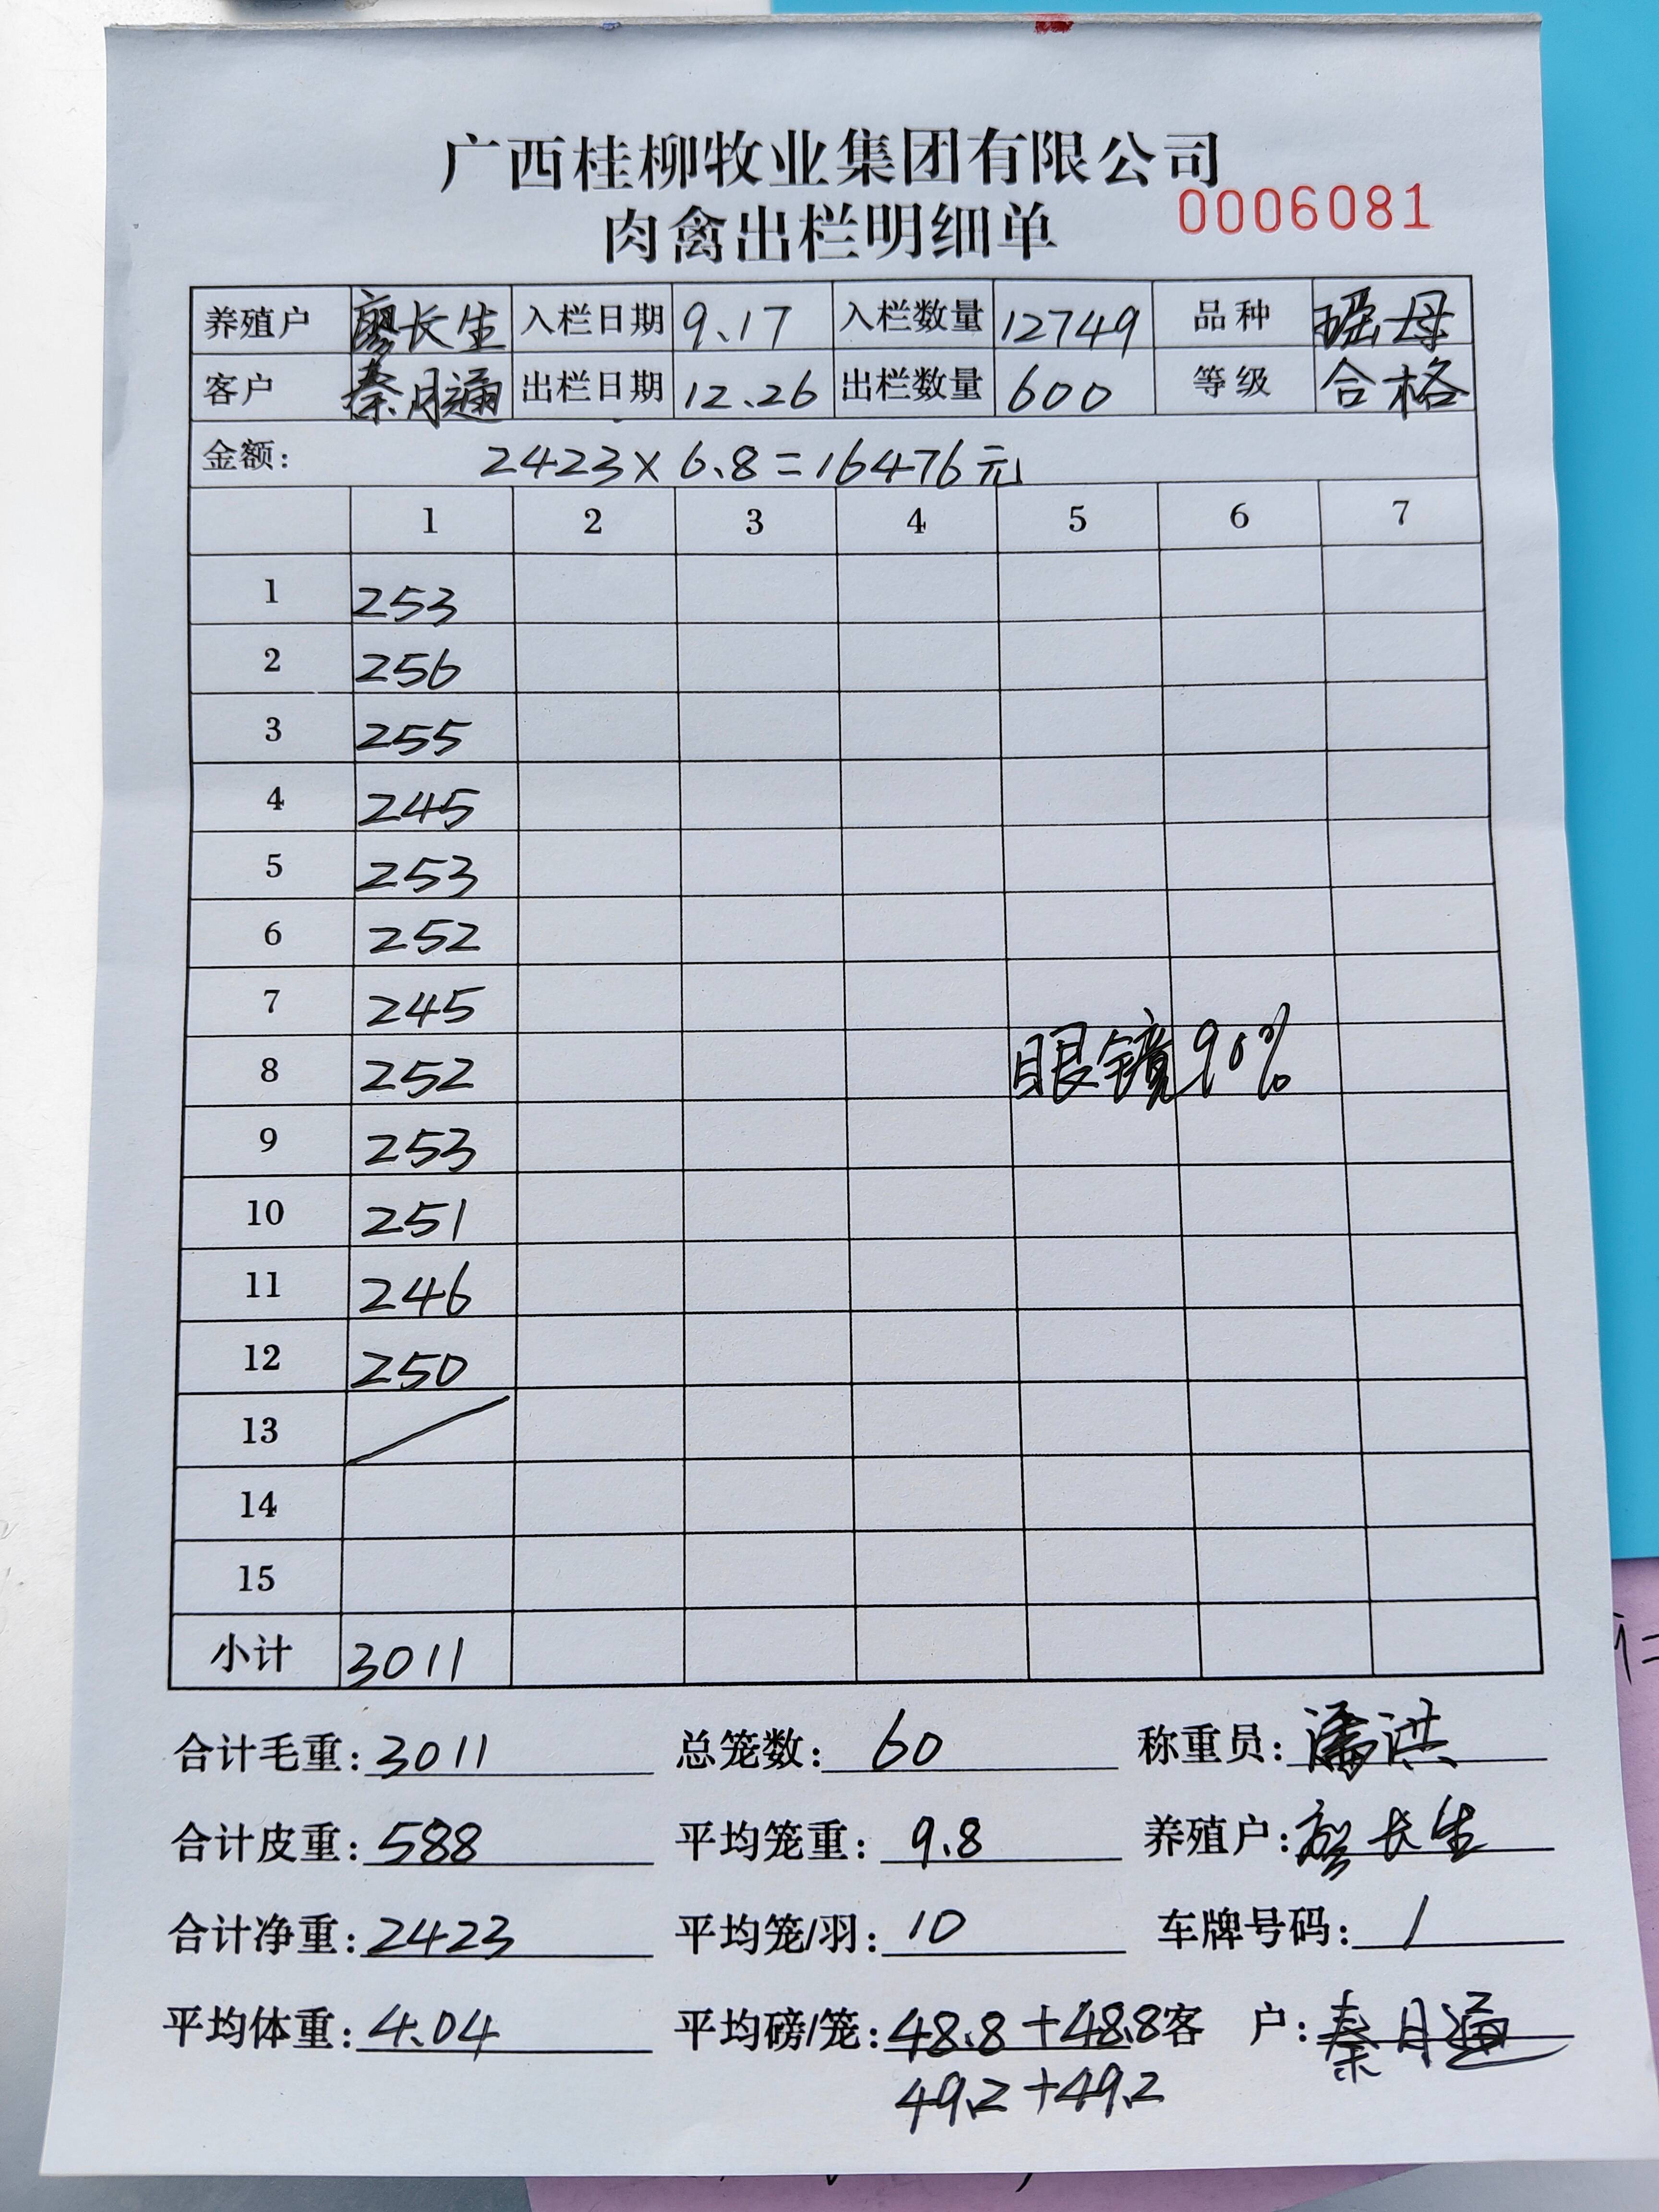 广西桂柳牧业集团有限公司
肉禽出栏明细单 0006081
养殖户 廖长生 入栏日期 9.17 入栏数量 12749 品种 瑶母
客户 秦月通 出栏日期 12.26 出栏数量 600 等级 合格
金额: 2423×6.8=16476元
1 2 3 4 5 6 7
1 253
2 256
3 255
4 245
5 253
6 252
7 245
8 252 眼镜90%
9 253
10 251
11 246
12 250
13
14
15
小计 3011
合计毛重:3011 总笼数:60 称重员:潘洪
合计皮重:588 平均笼重:9.8 养殖户:廖长生
合计净重:2423 平均笼/羽:10 车牌号码:/
平均体重:4.04 平均磅/笼:48.8+48.8 客户:秦月通
49.2+49.2